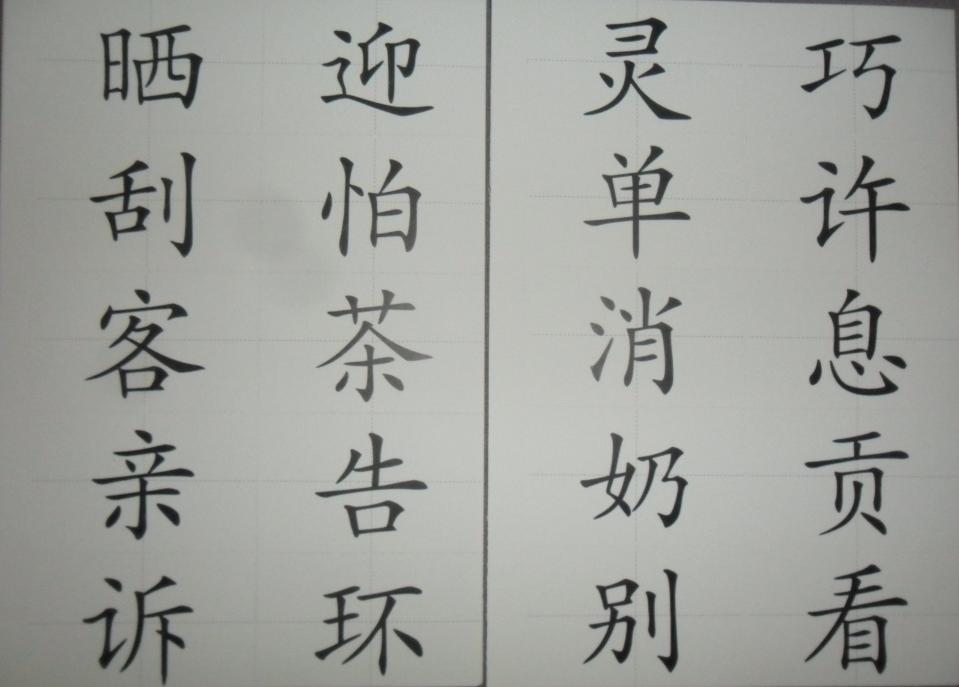 晒 迎 灵 巧
刮 怕 单 许
客 茶 消 息
亲 告 奶 贡
诉 环 别 看